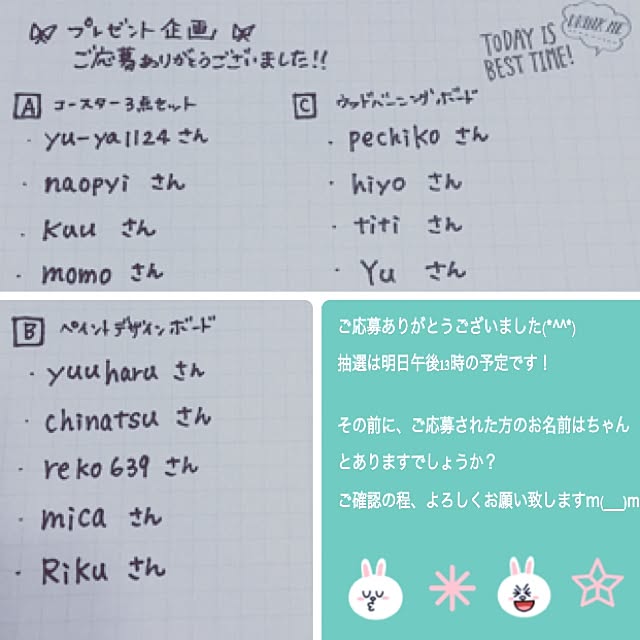 プレゼント企画
ご応募ありがとうございました!!
TODAY IS
BEST TIME!
DRINK ME
A コースター3点セット
・yu-ya1124 さん
・naopyi さん
・kau さん
・momo さん
C ウッドバーニングボード
・pechiko さん
・hiyo さん
・titi さん
・Yu さん
B ペイントデザインボード
・yuuharu さん
・chinatsu さん
・reko639 さん
・mica さん
・Riku さん
ご応募ありがとうございました(*^^*)
抽選は明日午後13時の予定です！
その前に、ご応募された方のお名前はちゃん
とありますでしょうか？
ご確認の程、よろしくお願い致しますm(__)m